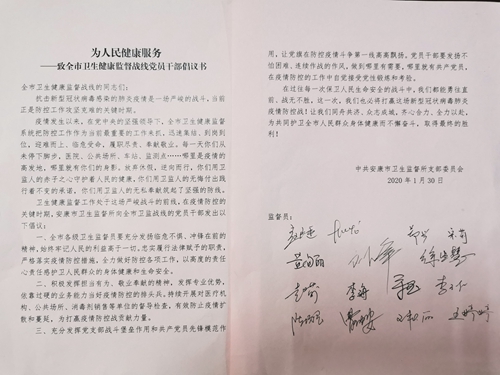 为人民健康服务
——致全市卫生健康监督战线党员干部倡议书
全市卫生健康监督战线的同志们:
抗击新型冠状病毒感染的肺炎疫情是一场严峻的战斗,当前
正是防控工作攻坚克难的关键时期。
疫情发生以来,在党中央的坚强领导下,全市卫生健康监督
系统把防控工作作为当前最重要的工作来抓,迅速集结、到岗到
位,迎难而上、临危受命,履职尽责、奉献敬业。每一天你们从
未停下脚步,医院、公共场所、车站、监测点……哪里是疫情的
高发地,哪里就有你们的身影,放弃休假,逆向而行,你们用卫
监人的赤子之心守护着人民的健康,你们用卫监人的无悔付出践
行着不变的承诺,你们用卫监人的无私奉献筑起了坚强的防线。
卫生健康监督工作处于这场严峻战斗的前线,在疫情防控的
关键时期,安康市卫生监督所向全市卫监战线的党员干部发出以
下倡议:
一、全市各级卫生监督员要充分发扬临危不惧、冲锋在前的
精神,始终牢记人民的利益高于一切,忠实履行法律赋予的职责,
严格落实疫情防控措施,全力做好防控各项工作,以高度的责任
心责任感护卫人民群众的身体健康和生命安全。
二、积极发挥担当有为、敬业奉献的精神,发挥专业优势,
依靠过硬的业务能力当好疫情防控的排头兵,持续开展对医疗机
构、公共场所、消毒剂销售等单位的督导检查,有效防止疫情扩
散和蔓延,为打赢疫情防控战贡献力量。
三、充分发挥党支部战斗堡垒作用和共产党员先锋模范作
用,让党旗在防控疫情斗争第一线高高飘扬。党员干部要发扬不
怕困难、连续作战的作风,做到哪里有需要,哪里就有共产党员,
在疫情防控的工作中自觉接受党性锻炼和考验。
在过往每一次保卫人民生命安全的战斗中,我们都能勇往直
前、战无不胜。这一次,我们也必将打赢这场新型冠状病毒肺炎
疫情防控战!让我们同舟共济、众志成城,齐心合力、全力以赴,
为共同护卫全市人民群众身体健康而不懈奋斗,取得最终的胜
利!
中共安康市卫生监督所支部委员会
2020 年 1 月 30 日
监督员:
李舟